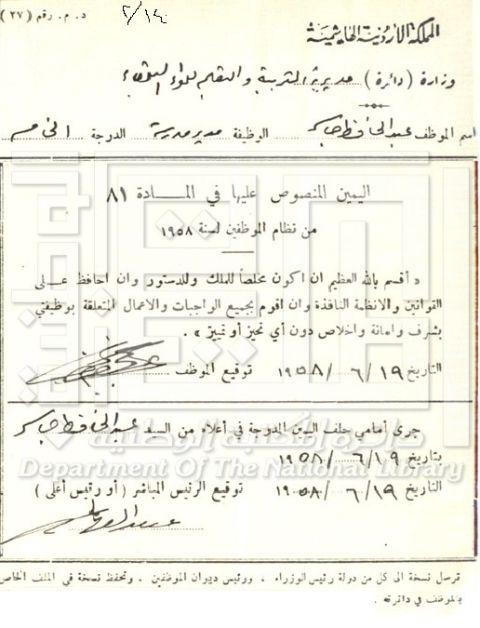 د. م. رقم (٢٧)
المملكة الأردنية الهاشمية
وزارة (دائرة) مديرية التربية والتعليم للواء البلقاء
اسم الموظف عبد الحافظ جابر الوظيفة مدير مدرسة الدرجة الخامسة
اليمين المنصوص عليها في المادة ٨١
من نظام الموظفين لسنة ١٩٥٨
« أقسم بالله العظيم ان اكون مخلصاً للملك وللدستور وان احافظ على
القوانين والانظمة النافذة وان اقوم بجميع الواجبات والاعمال المتعلقة بوظيفتي
بشرف وامانة واخلاص دون أي تحيز أو تمييز ».
التاريخ ١٩/٦/١٩٥٨ توقيع الموظف
جرى أمامي حلف اليمين المدرجة في أعلاه من السيد عبد الحافظ جابر
دائرة المكتبة الوطنية
بتاريخ ١٩/٦/١٩٥٨
Department Of The National Library
التاريخ ١٩/٦/١٩٥٨ توقيع الرئيس المباشر (أو رئيس أعلى)
ترسل نسخة الى كل من دولة رئيس الوزراء ، ورئيس ديوان الموظفين ، وتحفظ نسخة في الملف الخاص
بالموظف في دائرته .